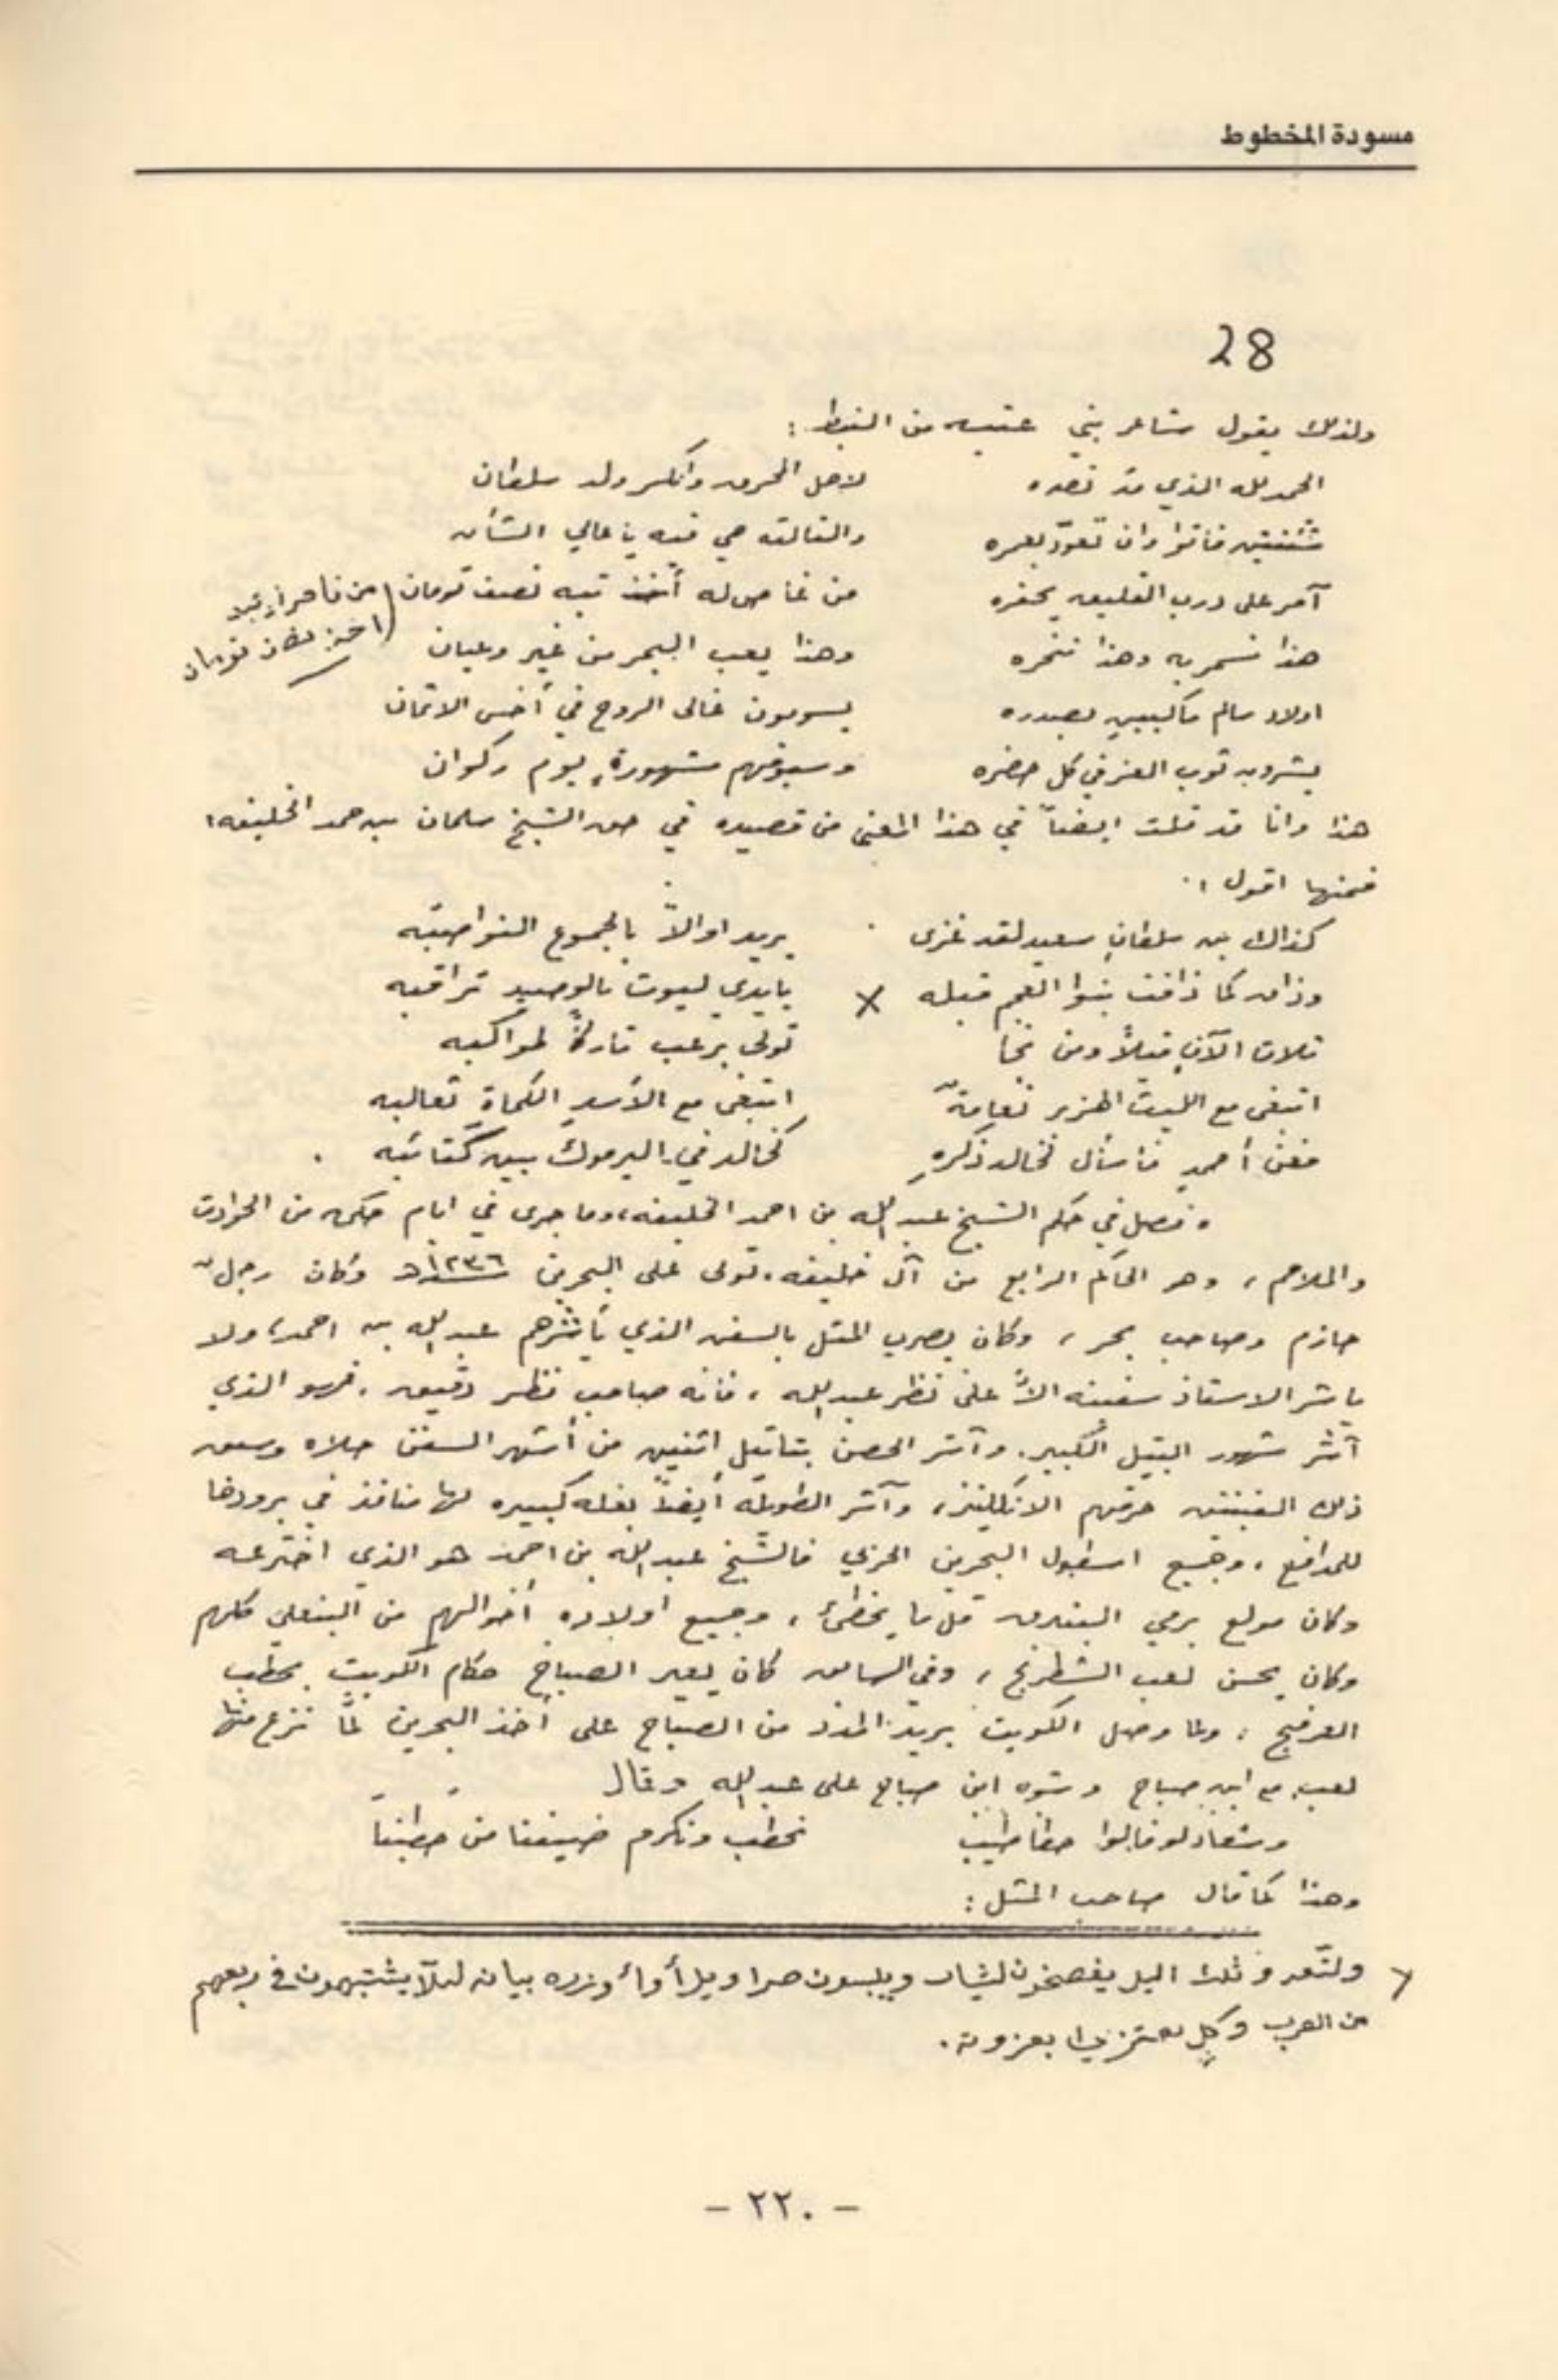 مسودة المخطوط
28
ولذلك يقول شاعر بني عتبه من النبط :
الحمد لله الذي قد نصره لاهل المحرق وانكسر ولد سلطان
فاتوا وان تعوّد بعمره والثالثه هي فيه يا عالي الشأن
آمر على درب القليعه يحفره من غاص له أخذ تبه نصف تومان (من
تومان
هذا نسمر به وهذا ننحره وهذا يعب البحر من غير وعيان
اولاد سالم بصدره يسومون غالى الروح في أخس الاثمان
يشرون ثوب العز في كل حضره وسيوفهم مشهورة يوم ركوان
هذا وانا قد قلت ايضاً في هذا المعنى من قصيده في حق الشيخ سلمان بن حمد الخليفه،
فمنها اقول :
كذاك بن سلطان سعيد لقد غزى يريد اوالاً بالجموع النواصبه
وذاق كما ذاقت بنوا العجم قبله × بايدي ليوث بالوصيد تراقبه
ثلاث الآف قتيلاً ومن نجا تولى برعب تاركاً لمواكبه
اتبغى مع الليث الهزبر نعامةٌ اتبغى مع الأسد الكماة ثعالبه
فعن أحمد فأسأل فخالد ذكره كخالد في اليرموك بين كتائبه .
، فصل في حكم الشيخ عبد الله بن احمد الخليفه، وما جرى في ايام حكمه من الحوادث
والملاحم ، وهو الحاكم الرابع من آل خليفه، تولى على البحرين سنة ١٢٣٦هـ وكان رجل
حازم وصاحب بحر ، وكان يضرب المثل بالسفن الذي يأشرهم عبد الله بن احمد، ولا
ياشر الاستاذ سفينه الاّ على نظر عبد الله ، فانه صاحب نظر دقيق ، فهو الذي
آشر شهور البتيل الكبير. وآشر الحصن بتاتيل اثنين من أشهر السفن حلاه وسبق
ذلك حرقهم الانكليز، وآشر الطويله أيضاً بغله كبيره لها منافذ في برودها
للمدافع ، وجميع اسطول البحرين الحربي فالشيخ عبد الله بن احمد هو الذي اخترعه
وكان مولع برمي البندق قل ما يخطئ ، وجميع اولاده أخوالهم من البنعلي كلهم
وكان يحسن لعب الشطرنج ، وفي السابق كان يعير الصباح حكام الكويت بحطب
العرفج ، ولما وصل الكويت يريد المدد من الصباح على أخذ البحرين لمّا نزع منها
لعب مع ابن صباح وشوه ابن صباح على عبد الله وقال
لو قالوا حطاطيب نحطب ونكرم ضيفنا من حطبنا
وهذا كما قال صاحب المثل :
× ثلث اليل ويلبسون بيان لئلّا يشتبهون في ربعهم
من العرب وكل بعزوته.
- ٢٢٠ -